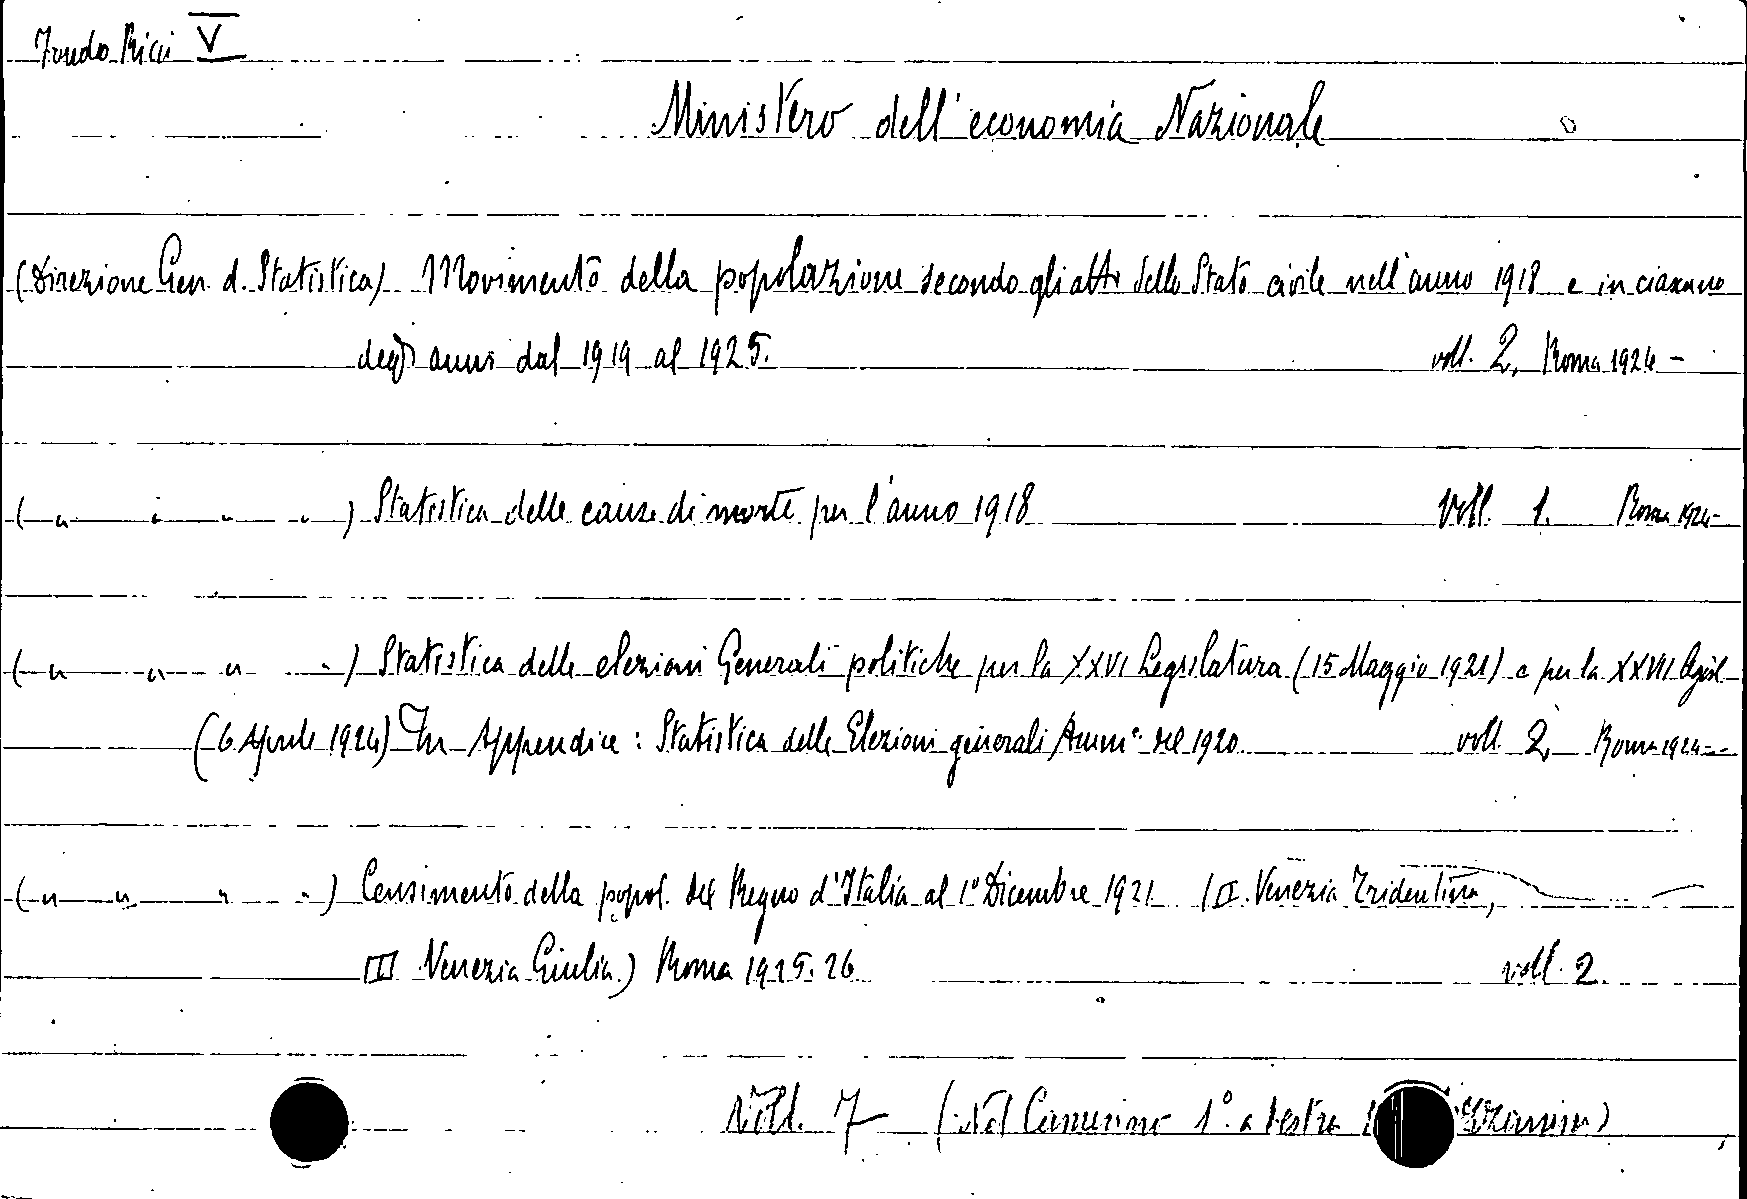 Fondo Ricci V
Ministero dell'economia Nazionale
(Direzione Gen. d. Statistica) Movimento della popolazione secondo gli atti dello Stato civile nell'anno 1918 e in ciascuno
degli anni dal 1919 al 1925. voll. 2, Roma 1924 -
( " " " " ) Statistica delle cause di morte per l'anno 1918 Voll. 1. Roma 1924 -
( " " " " ) Statistica delle elezioni Generali politiche per la XXVI Legislatura (15 Maggio 1921) e per la XXVII
(6 Aprile 1924) In Appendice: Statistica delle Elezioni generali Amm.e del 1920 voll. 2, Roma 1924 -
( " " " " ) Censimento della popol. del Regno d'Italia al 1° Dicembre 1921 (II. Venezia Tridentina,
III Venezia Giulia.) Roma 1925.26 voll. 2.
Voll. 7 (Nel Camerino 1° a destra